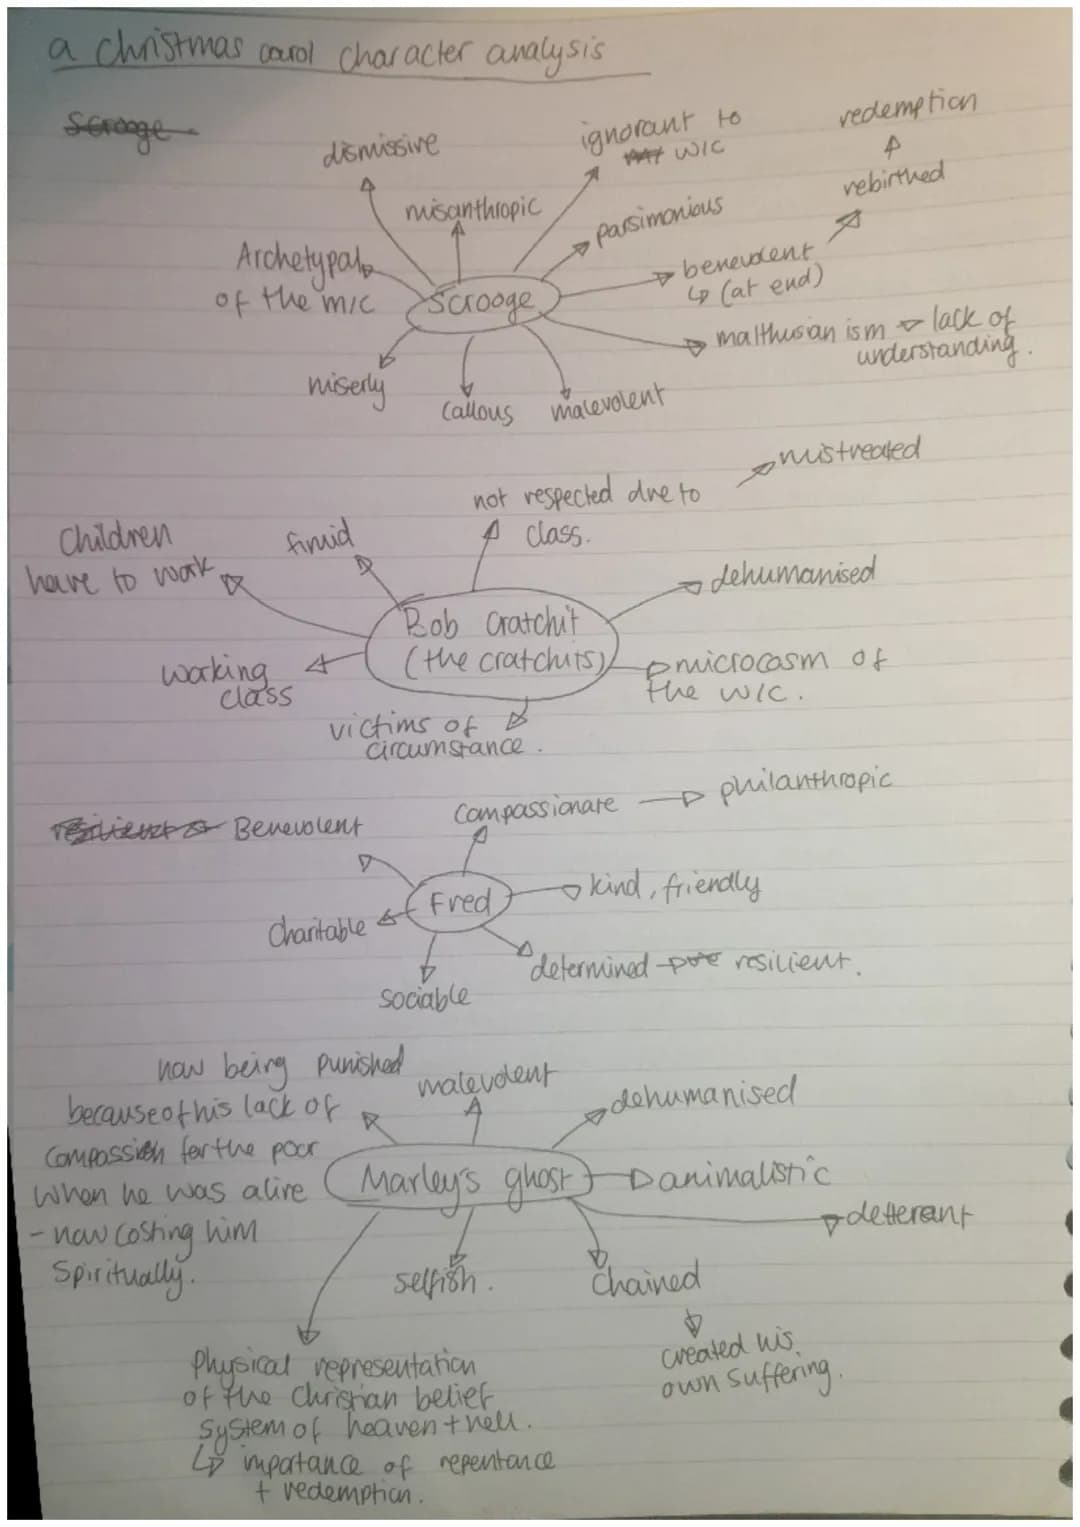 a christmas carol character analysis
Scrooge
dismissive
ignorant to
W/C
redemption
rebirthed
misanthropic
parsimonious
Archetypal
of the M/C
Scrooge
benevolent
↳ (at end)
malthusianism → lack of
understanding.
miserly
callous
malevolent
mistreated
not respected due to
class.
Children
have to work
timid
dehumanised
Bob Cratchit
(the cratchits)
working
class
microcosm of
the W/C.
victims of
circumstance.
compassionate → philanthropic
resilient → Benevolent
Fred
kind, friendly
charitable
determined → resilient.
sociable
now being punished
because of his lack of
compassion for the poor
when he was alive
- now costing him
spiritually.
malevolent
dehumanised
Marley's ghost
animalistic
detterant
selfish.
Chained
created his
own suffering.
Physical representation
of the Christian belief
system of heaven + hell.
↳ importance of repentance
+ redemption.